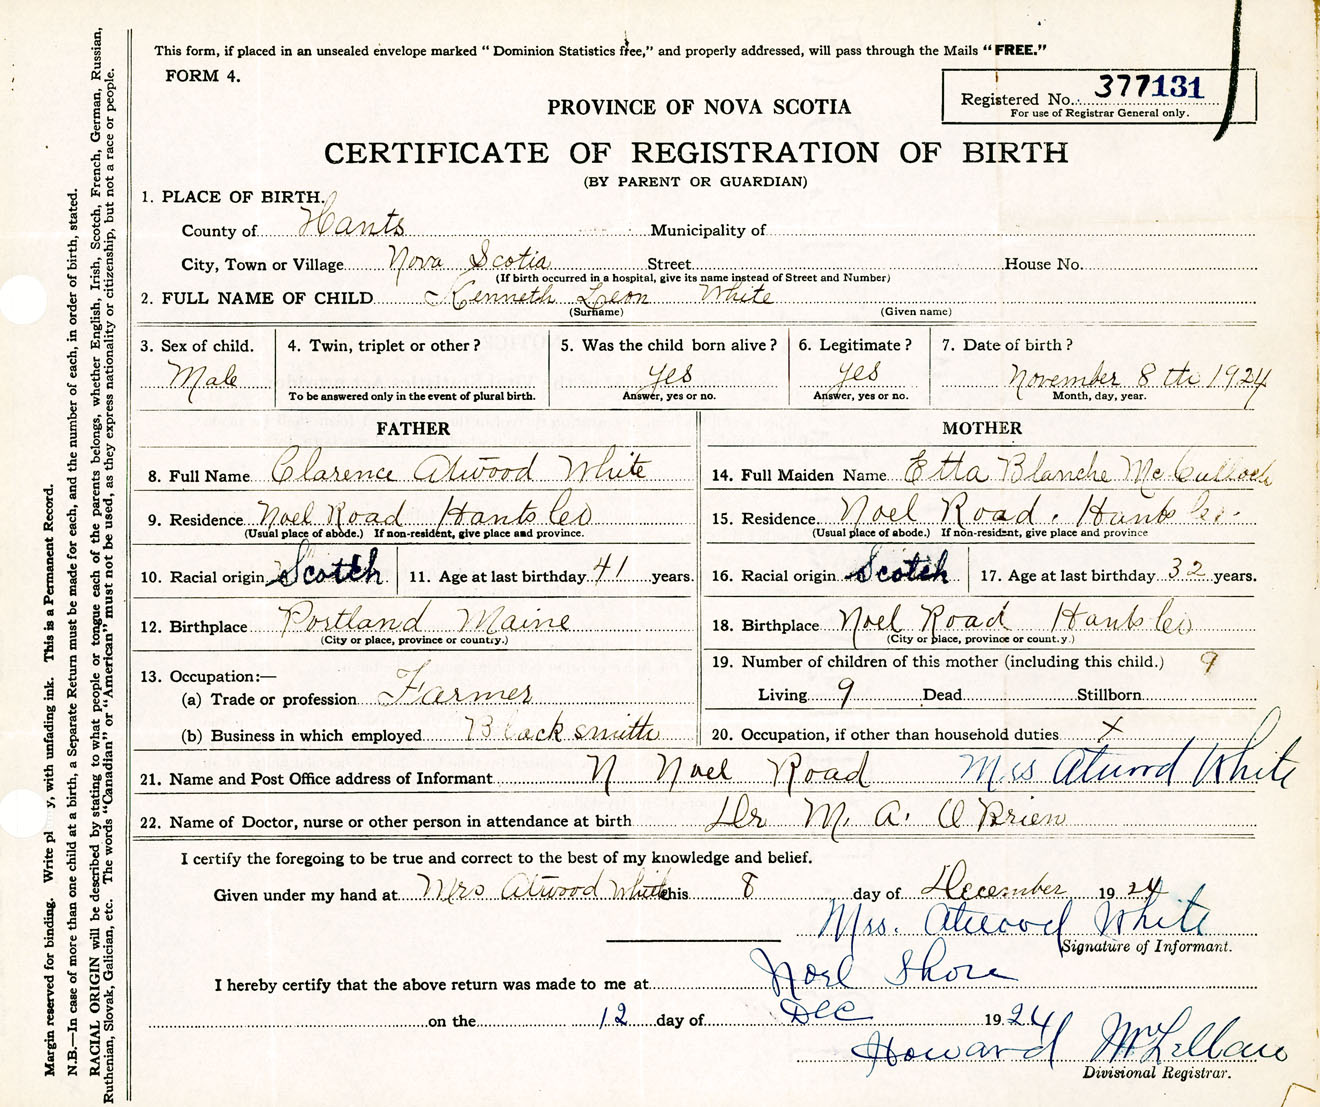 This form, if placed in an unsealed envelope marked "Dominion Statistics free," and properly addressed, will pass through the Mails "FREE."
FORM 4.
Registered No. 377131
For use of Registrar General only.
PROVINCE OF NOVA SCOTIA
CERTIFICATE OF REGISTRATION OF BIRTH
(BY PARENT OR GUARDIAN)
1. PLACE OF BIRTH.
County of Hants Municipality of
City, Town or Village Nova Scotia Street House No.
(If birth occurred in a hospital, give its name instead of Street and Number)
2. FULL NAME OF CHILD Kenneth Leon White
(Surname) (Given name)
3. Sex of child. 4. Twin, triplet or other? 5. Was the child born alive? 6. Legitimate? 7. Date of birth?
Male yes yes November 8 th 1924
To be answered only in the event of plural birth. Answer, yes or no. Answer, yes or no. Month, day, year.
FATHER MOTHER
8. Full Name Clarence Atwood White 14. Full Maiden Name Etta Blanche McCulloch
9. Residence Noel Road Hants Co 15. Residence Noel Road. Hants Co.
(Usual place of abode.) If non-resident, give place and province. (Usual place of abode.) If non-resident, give place and province
10. Racial origin Scotch 11. Age at last birthday 41 years. 16. Racial origin Scotch 17. Age at last birthday 32 years.
12. Birthplace Portland Maine 18. Birthplace Noel Road Hants Co
(City or place, province or country.) (City or place, province or county.)
13. Occupation:— 19. Number of children of this mother (including this child.) 9
(a) Trade or profession Farmer Living 9 Dead Stillborn
(b) Business in which employed Blacksmith 20. Occupation, if other than household duties X
21. Name and Post Office address of Informant N Noel Road Mrs Atwood White
22. Name of Doctor, nurse or other person in attendance at birth Dr M. A. O Brien
I certify the foregoing to be true and correct to the best of my knowledge and belief.
Given under my hand at Mrs Atwood White this 8 day of December 1924
Mrs. Atwood White
Signature of Informant.
I hereby certify that the above return was made to me at Noel Shore
on the 12 day of Dec 1924
Howard McLellan
Divisional Registrar.
Margin reserved for binding. Write pl y, with unfading ink. This is a Permanent Record.
N.B.—In case of more than one child at a birth, a Separate Return must be made for each, and the number of each, in order of birth, stated.
RACIAL ORIGIN will be described by stating to what people or tongue each of the parents belongs, whether English, Irish, Scotch, French, German, Russian,
Ruthenian, Slovak, Galician, etc. The words "Canadian" or "American" must not be used, as they express nationality or citizenship, but not a race or people.